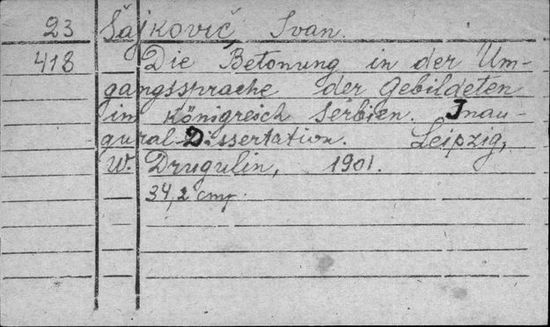 23 Šajković Ivan.
418 Die Betonung in der Um-
gangssprache der Gebildeten
im Königreich Serbien. Inau-
gural-Dissertation. Leipzig,
W. Drugulin, 1901.
34,2 стр.